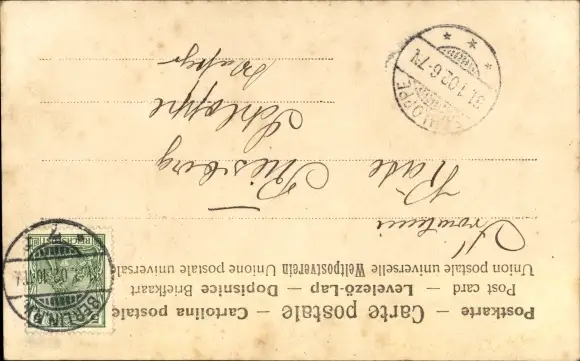 Postkarte — Carte postale — Cartolina postale
Post card — Levelező-Lap — Dopisnice Briefkaart
Union postale universelle Weltpostverein Unione postale universale
Fräulein
Käte
Schloppe
BERLIN
SCHLOPPE
31.1.02.6-7N.